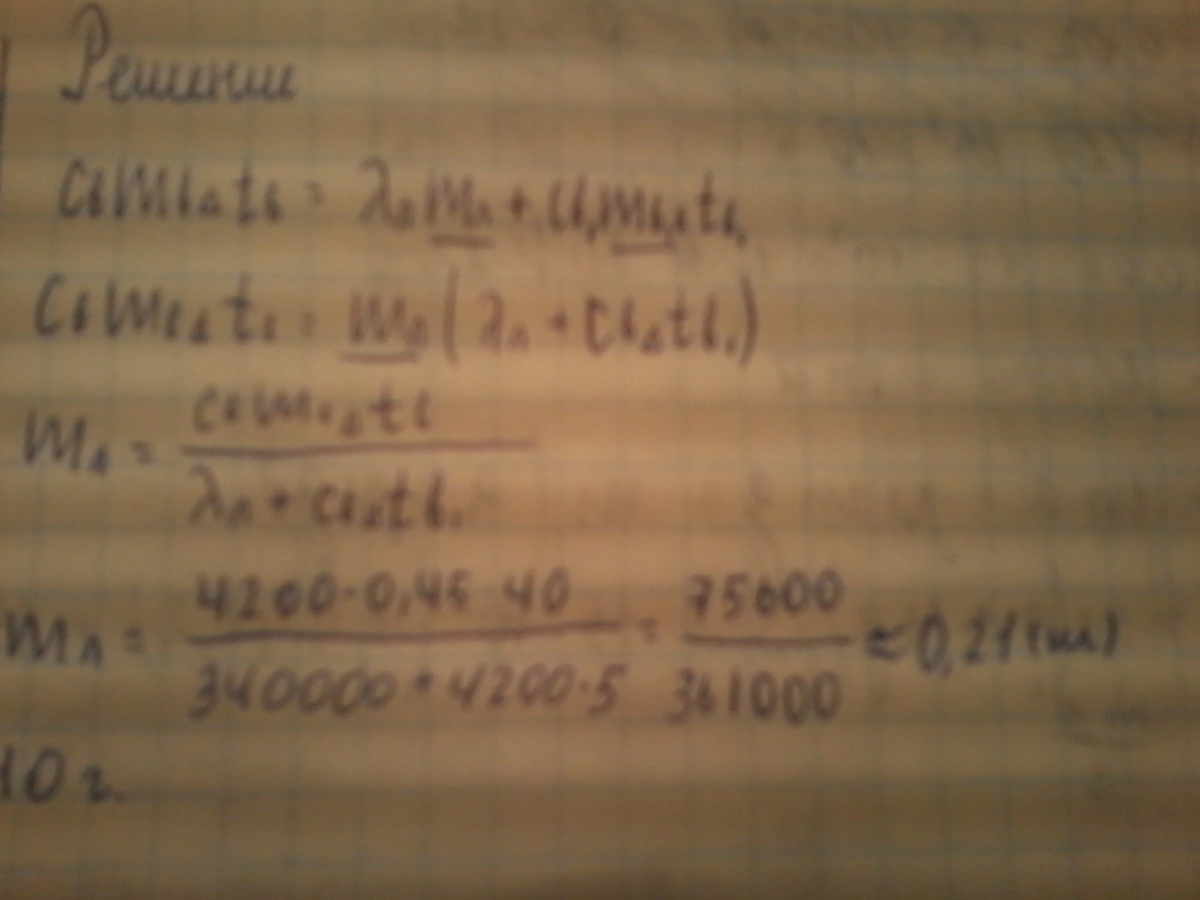 Решение
cвmвΔtв = λлmл + cв₁mв₁Δtв₁
cвmвΔtв = mл(λл + cвΔtв₁)
mл = cвmвΔtв / λл + cвΔtв₁
mл = 4200·0,45·40 / 340000 + 4200·5 = 75600 / 361000 ≈ 0,21 (кг)
10 г.